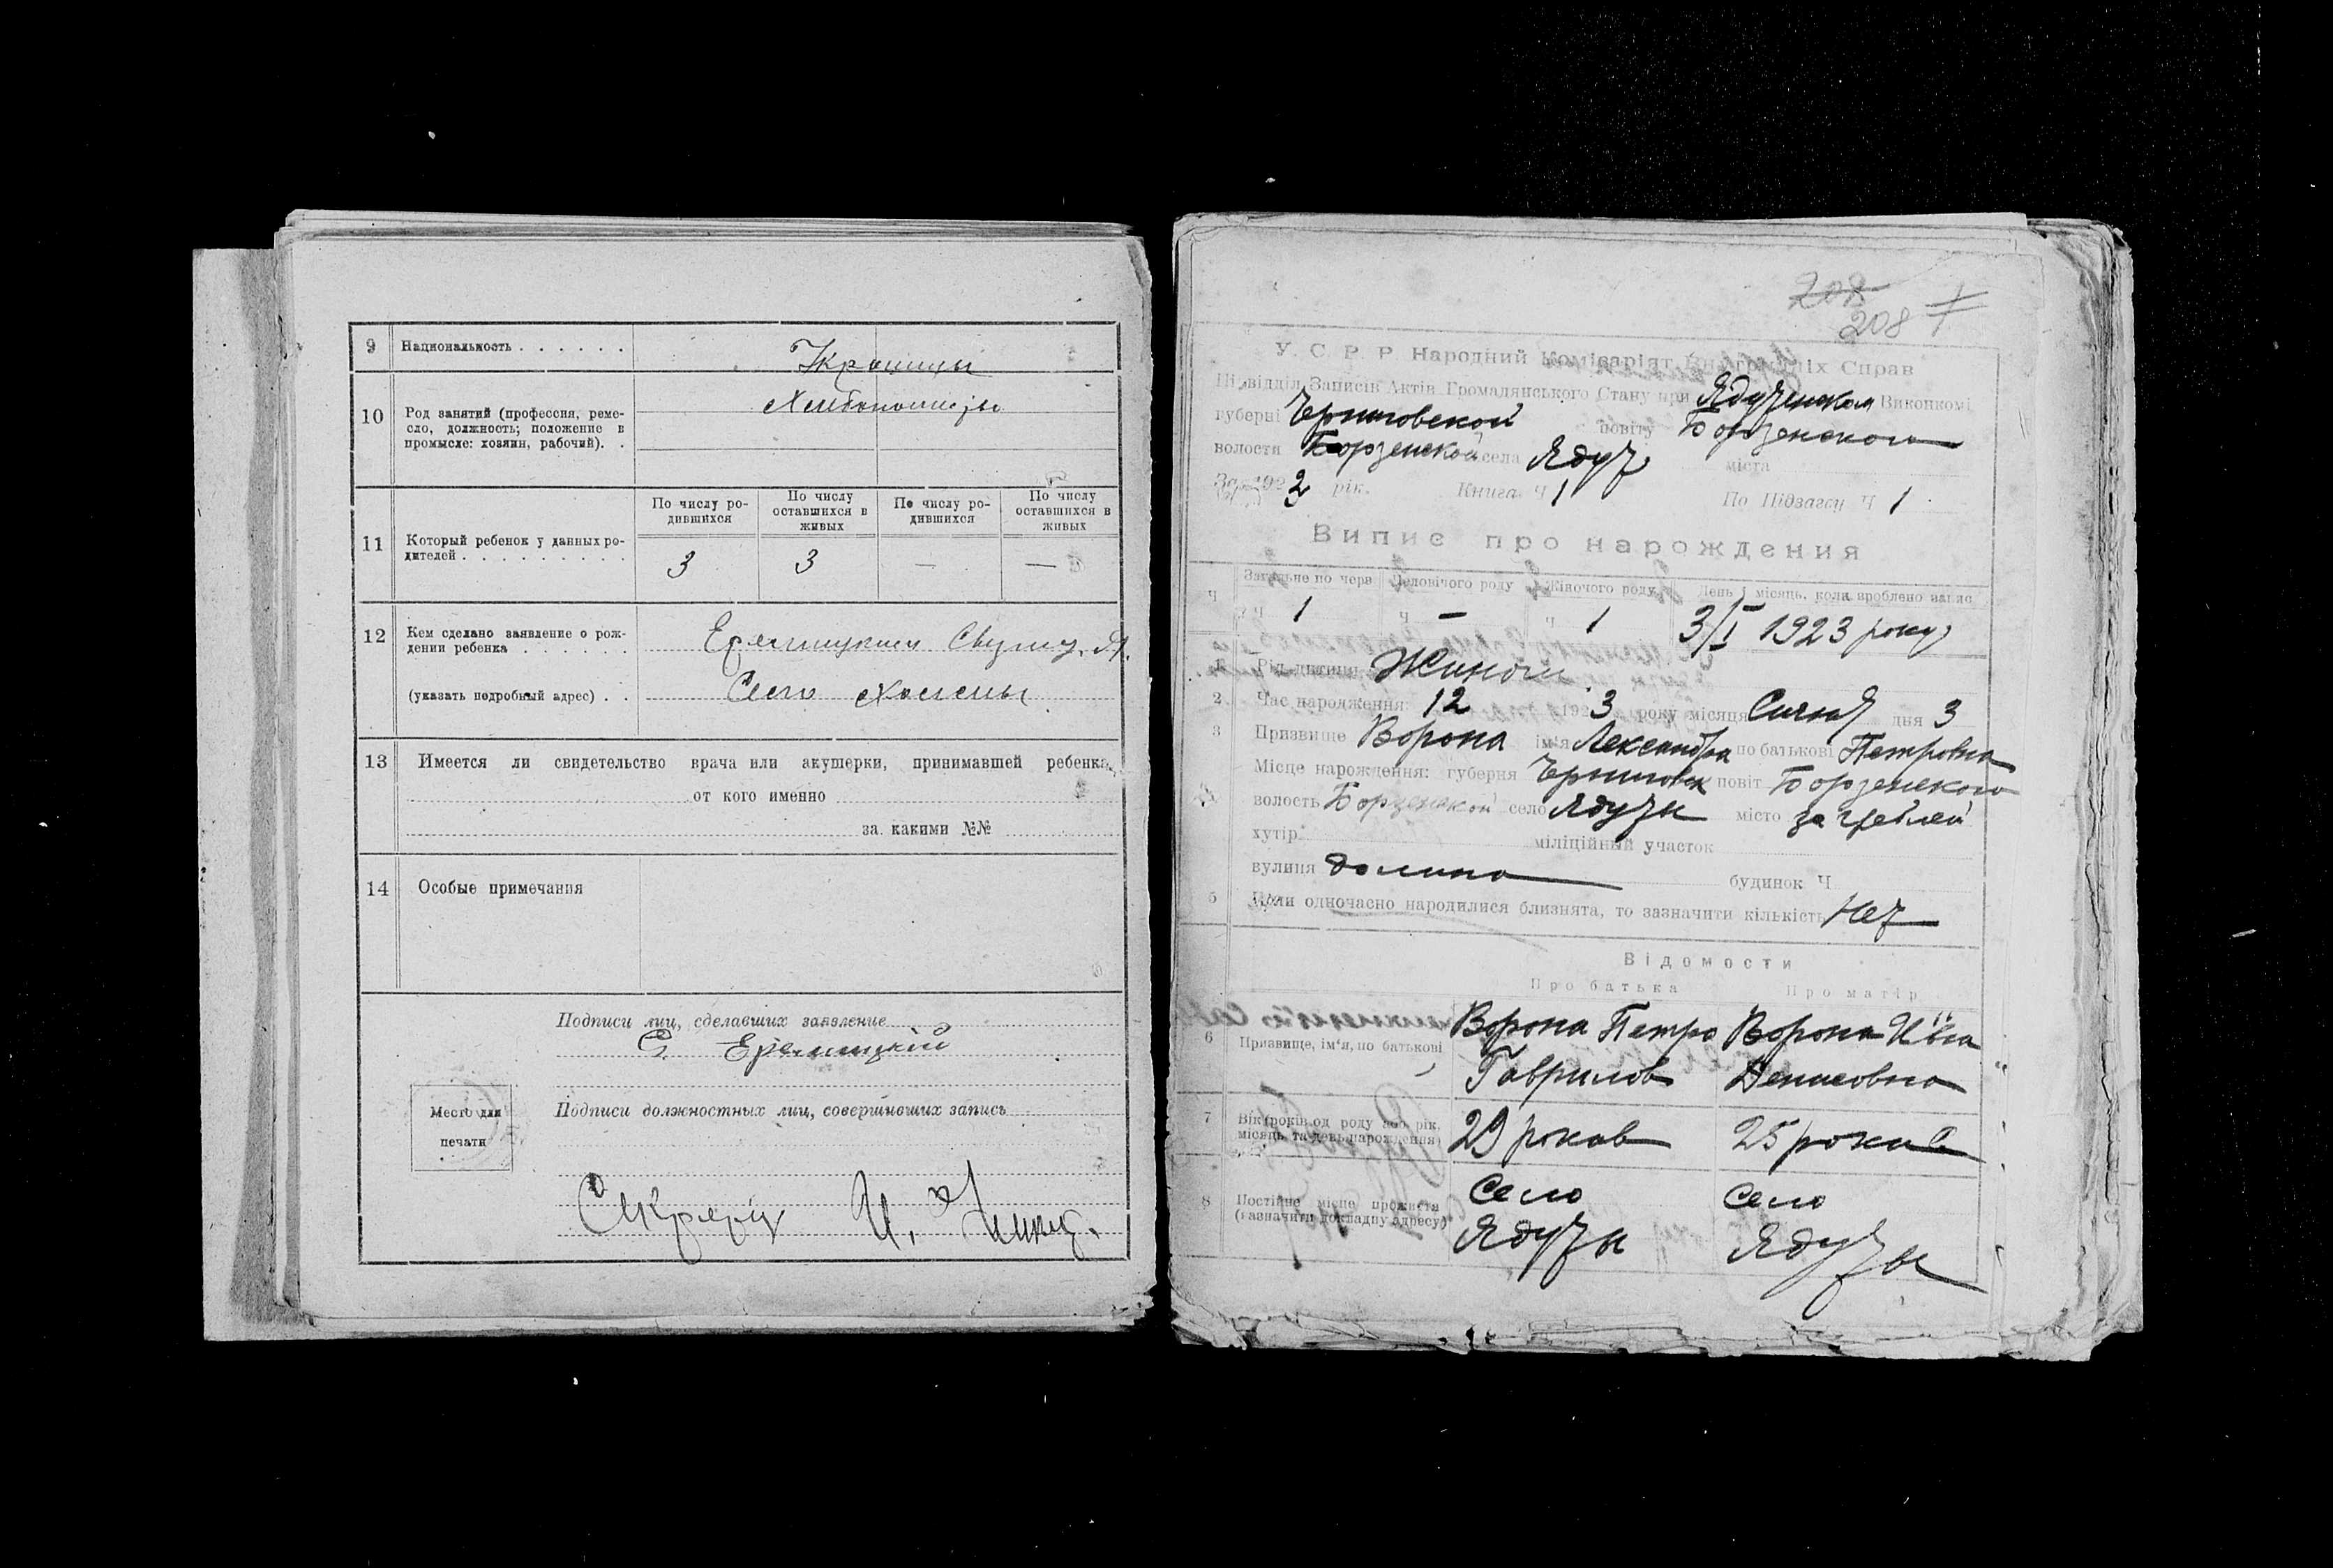 9 Национальность . . . . . .
Украинцы
10 Род занятий (профессия, реме-
сло, должность; положение в
промысле: хозяин, рабочий). .
По числу ро-
дившихся
По числу
оставшихся в
живых
По числу ро-
дившихся
По числу
оставшихся в
живых
11 Который ребенок у данных ро-
дителей . . . . . . . . .
3 3 — —
12 Кем сделано заявление о рож-
дении ребенка . . . . . .
(указать подробный адрес) . .
Село
13 Имеется ли свидетельство врача или акушерки, принимавшей ребенка
от кого именно
за какими №№
14 Особые примечания
Подписи лиц, сделавших заявление
Место для
печати
Подписи должностных лиц, совершивших запись
208
208
У. С. Р. Р. Народний Комісаріят Внутрішніх Справ
Підвідділ Записів Актів Громадянського Стану при Виконкомі
губерні Черниговской повіту Борзенского
волости Борзенской села Ядут міста
За 1922 рік. Книга Ч 1 По Підзагсу Ч 1
Випис про народждения
Ч Загальне по черв Человічого роду Жіночого роду День і місяць, коли зроблено запис
Ч 1 Ч — Ч 1 3/I 1923 року
1 Рід дитини Жиночи
2. Час народження: 12 1923 року місяця Сичня дня 3
3 Призвище Ворона ім'я Лександра по батькові Петровна
4 Місце нарождення: губерня Черниговск повіт Борзенского
волость Борзенской село Ядуты місто за греблей
хутір міліційный участок
вулиця долина будинок Ч
5 Коли одночасно народилися близнята, то зазначити кількість Нет
Відомости
Про батька Про матір
6 Призвище, ім'я, по батькові
Ворона Петро Ворона Ивга
Гаврилов Денисовна
7 Вік (років од роду або рік,
місяць та день нарождення)
29 роков 25 роков
8 Постійне місце прожиття
(зазначити докладну адресу)
Село Село
Ядуты Ядуты